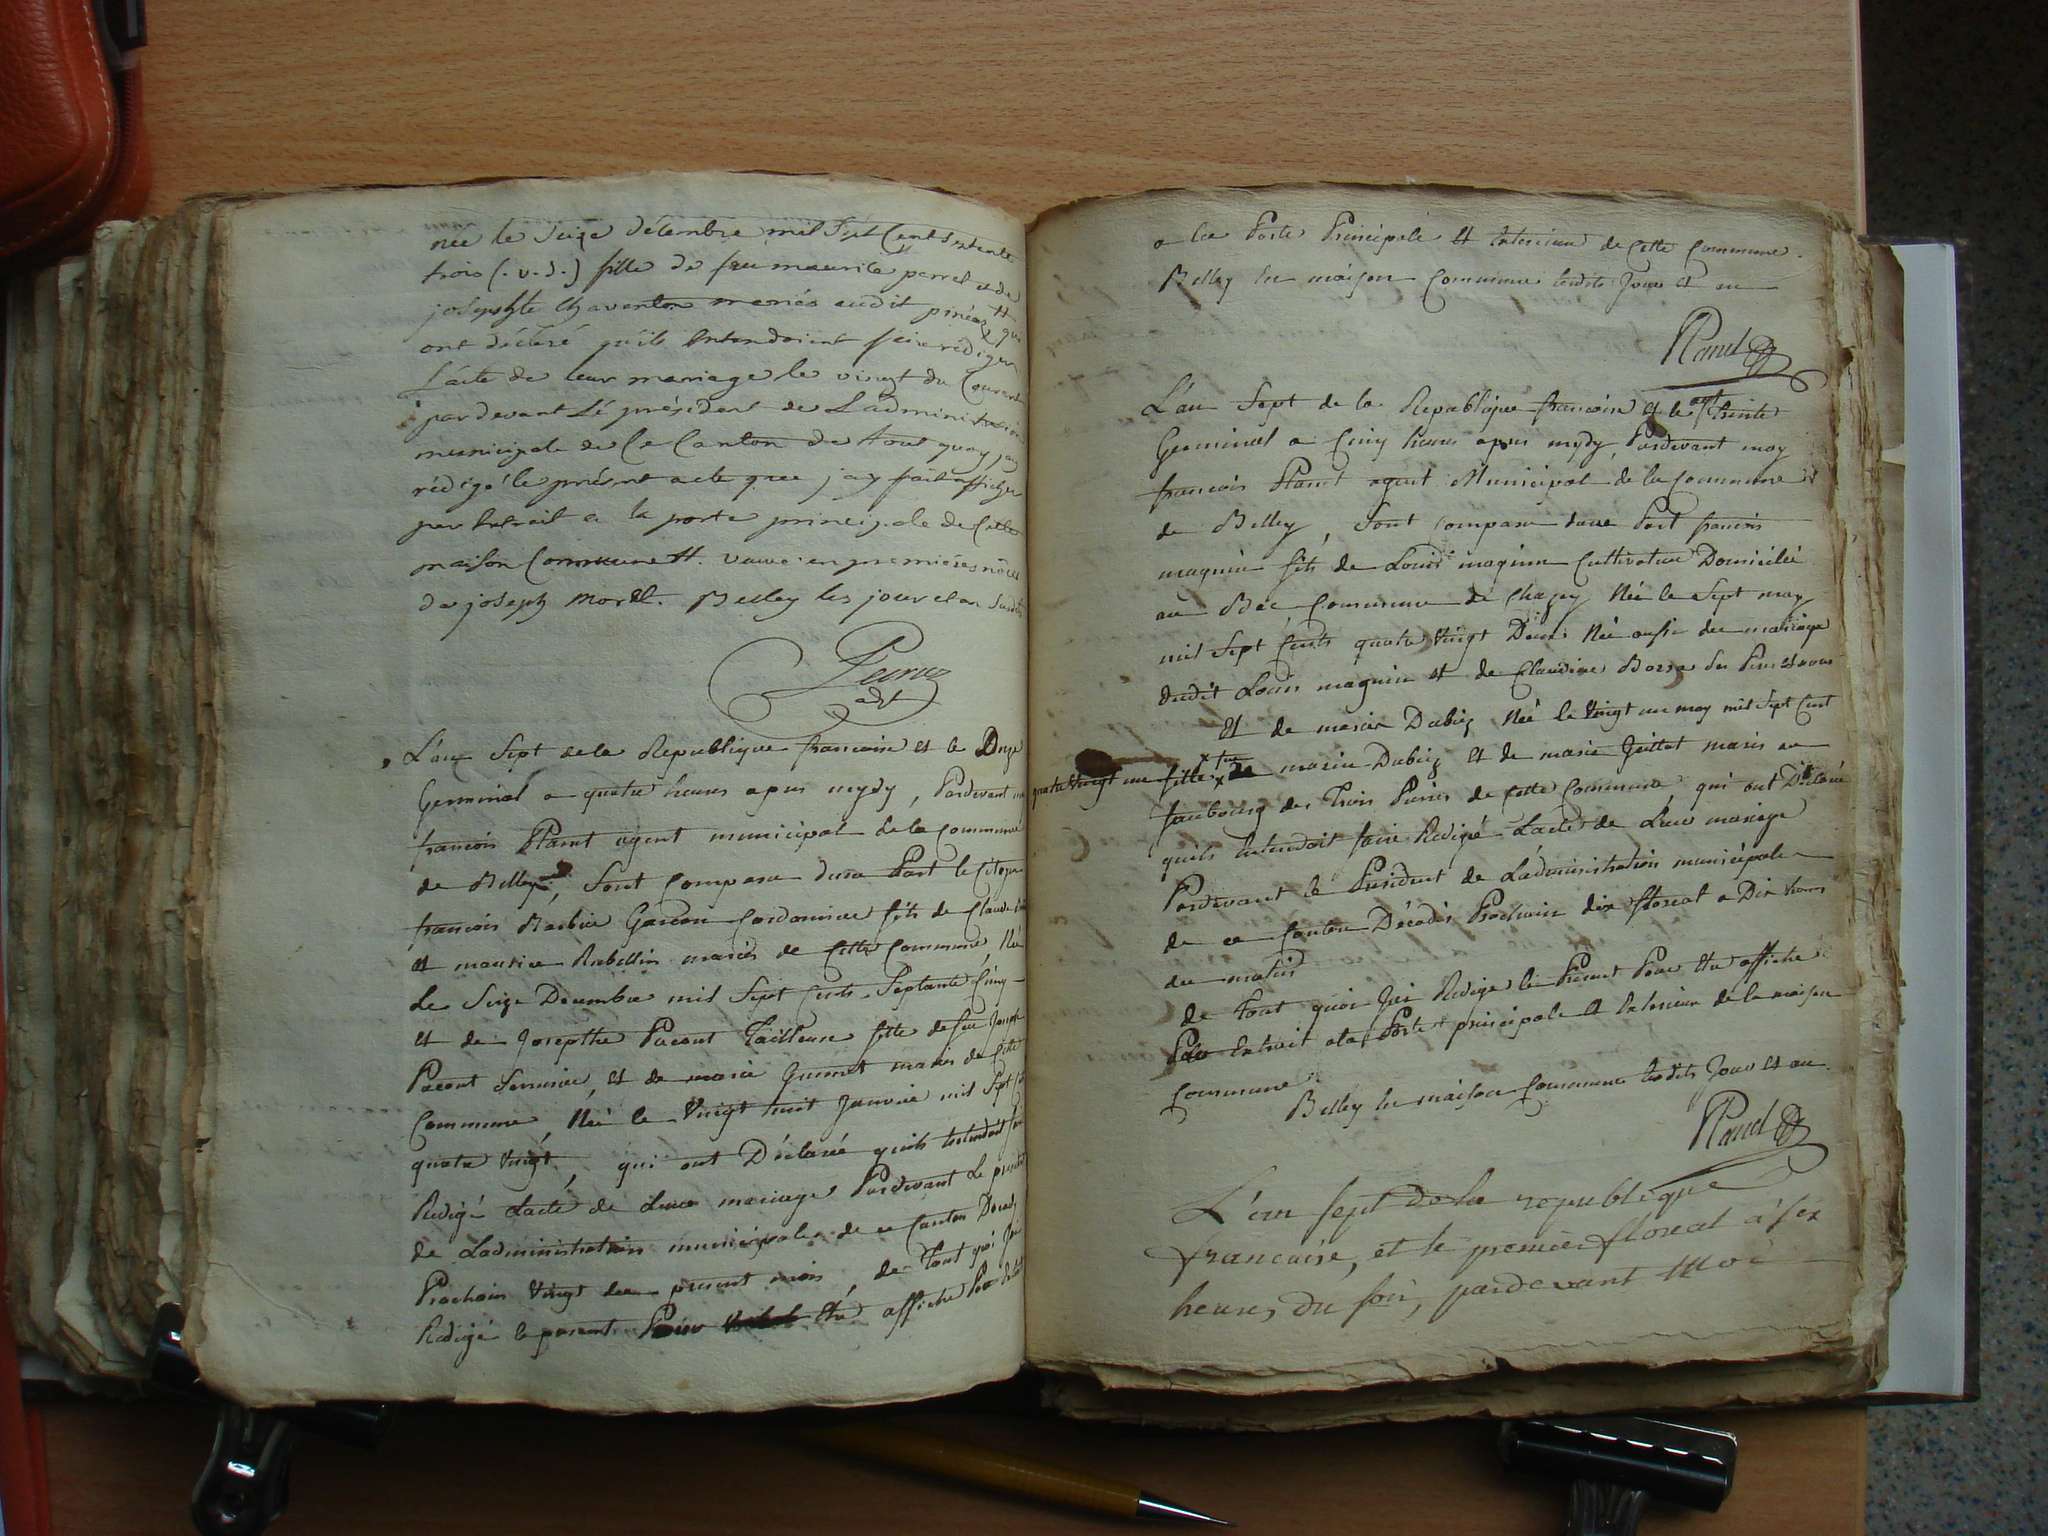 née le Seize décembre mil Sept Cent Septente
trois (. v. s.) fille de feu maurice perret et de
josephte Chaventon mariés audit
ont déclaré qu'ils Entendoient faire rédiger
L'acte de leur mariage le vingt du Courant
pardevant Lé président de L'administration
municipale de Ce Canton de tout quoy jay
rédigé le présent acte que j'ay fait afficher
par Extrait a la porte principale de Cette
maison Commune H. veuve en premières nôces
de joseph Morel. Belley les jour et an Susdits
agt
L'an Sept de la Republique francoise et le Onze
Germinal a quatre heures apres mydy, Pardevant moy
francois Ramt agent municipal de la commune
de Belley, Sont Compara dune Part le Citoyen
francois Barbier Garcon Cordonnier fils de Claude
et maurice Rubellin mariés de Cette Commune, Né
le Seize Decembre mil Sept Cents Septante Cinq
et de Josepthe Pacout Tailleuse fille de feu Joseph
Pacout Serrurier, et de marie Guimet mariés de Cette
Commune, Née le Vingt huit Janvier mil Sept Cent
quatre Vingt, qui ont Déclaré quils Entendoit faire
Redigé Lacte de Leur mariage Pardevant Le président
de Ladministration municipale de ce Canton Decady
Prochain Vingt du present mois, de Tout quoi Jai
Redigé le present Pour Etre affiche Par Extrait
a la Porte Principale et Interieure de Cette Commune.
Belley En maison Commune lesdits Jour et an
L'an Sept de la Republique francoise et le agt trente
Germinal a Cinq heures apres mydy, Pardevant moy
francois Ramt agent Municipal de la Commune
de Belley, Sont Compara dune Part francois
magnin fils de Louis magnin Cultivateur Domicilié
au Bac Commune de Chazey Né le Sept may
mil Sept Cents quatre Vingt Deux Né aussi du mariage
dudit Louis magnin et de Claudine Borra
Et de marie Dubiez Née le Vingt un may mil Sept Cent
quatre Vingt un fille de marin Dubiez et de marie Juillet mariés au
faubourg des Trois Pures de Cette Commune qui ont Déclaré
quils Entendoit faire Redigé Lacte de Leur mariage
Pardevant le President de Ladministration municipale
de ce Canton Décadis Prochain dix floreal a Dix heures
du matin
de Tout quoi Jai Redigé le Present Pour Etre affiche
Par Extrait a la Porte principale et Interieure de la maison
Commune
Belley En maison Commune lesdits Jour et an.
L'an sept de la republique
francaise, et le premier floreal à six
heures du soir, pardevant Moi